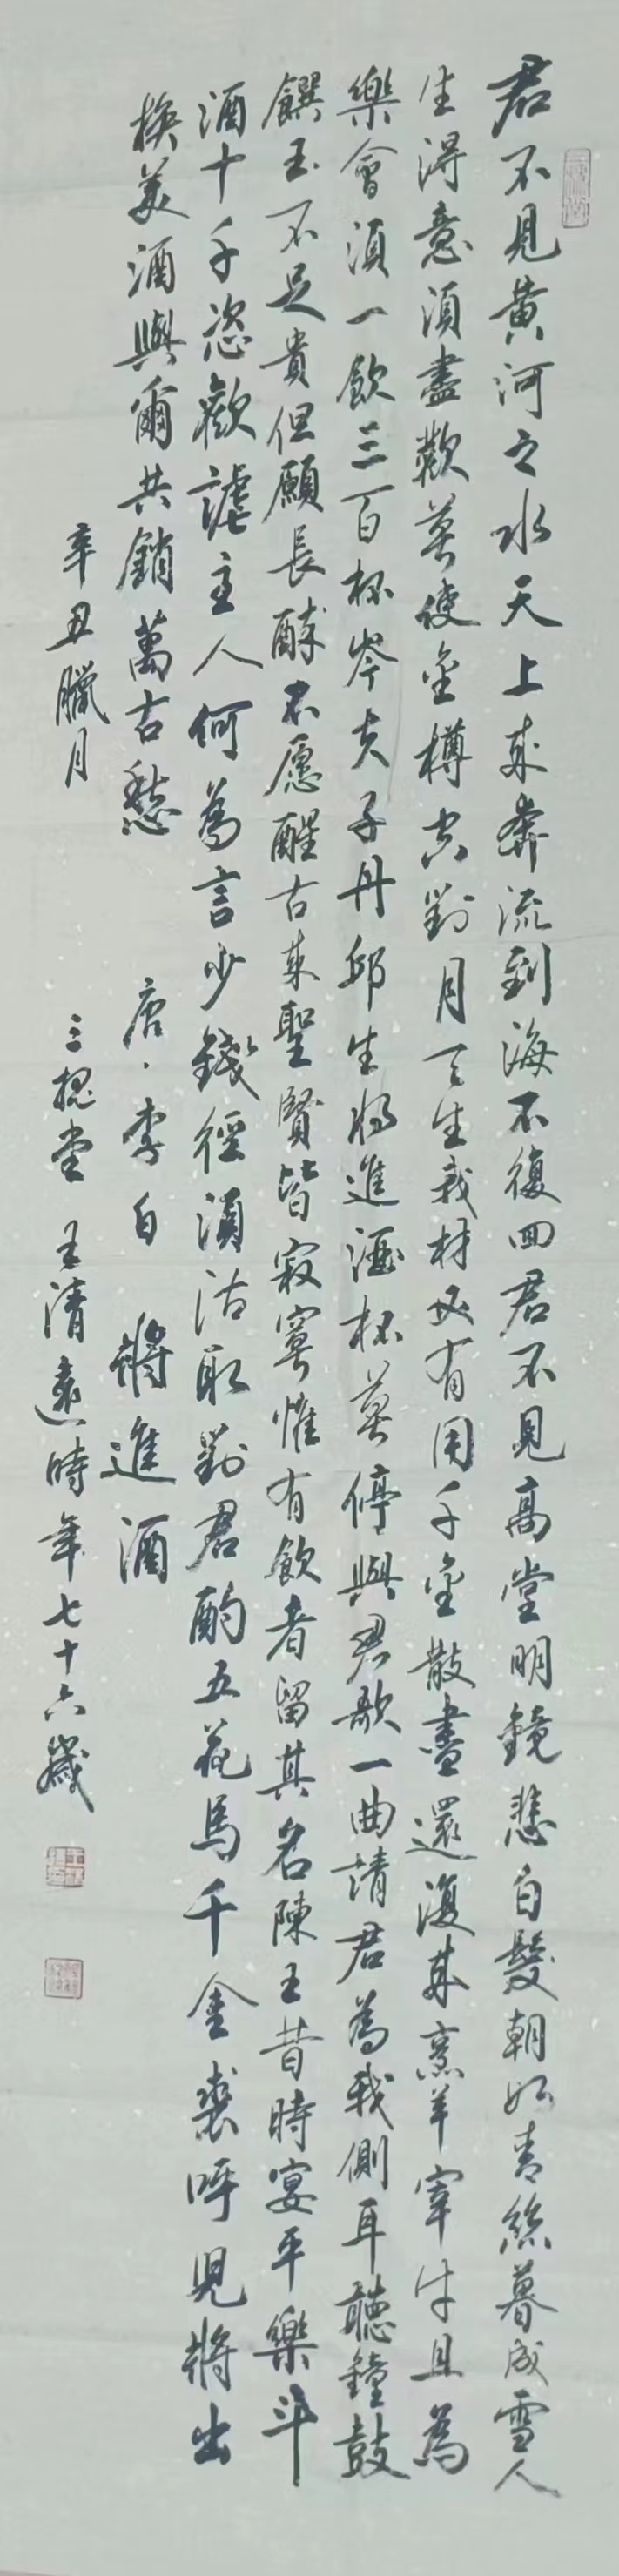 君不見黃河之水天上來奔流到海不復回君不見高堂明鏡悲白髮朝如青絲暮成雪人
生得意須盡歡莫使金樽空對月天生我材必有用千金散盡還復來烹羊宰牛且為
樂會須一飲三百杯岑夫子丹邱生將進酒杯莫停與君歌一曲請君為我側耳聽鐘鼓
饌玉不足貴但願長醉不愿醒古來聖賢皆寂寞惟有飲者留其名陳王昔時宴平樂斗
酒十千恣歡謔主人何為言少錢徑須沽取對君酌五花馬千金裘呼兒將出
換美酒與爾共銷萬古愁 唐·李白 將進酒
辛丑臘月 三槐堂 王清遠時年七十六歲